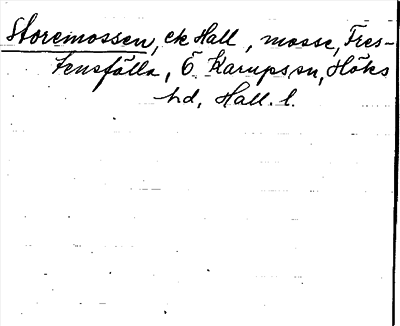 Storemossen, ek Hall, mosse, Fres-
tensfälla, Ö Karups sn, Höks
hd, Hall. l.